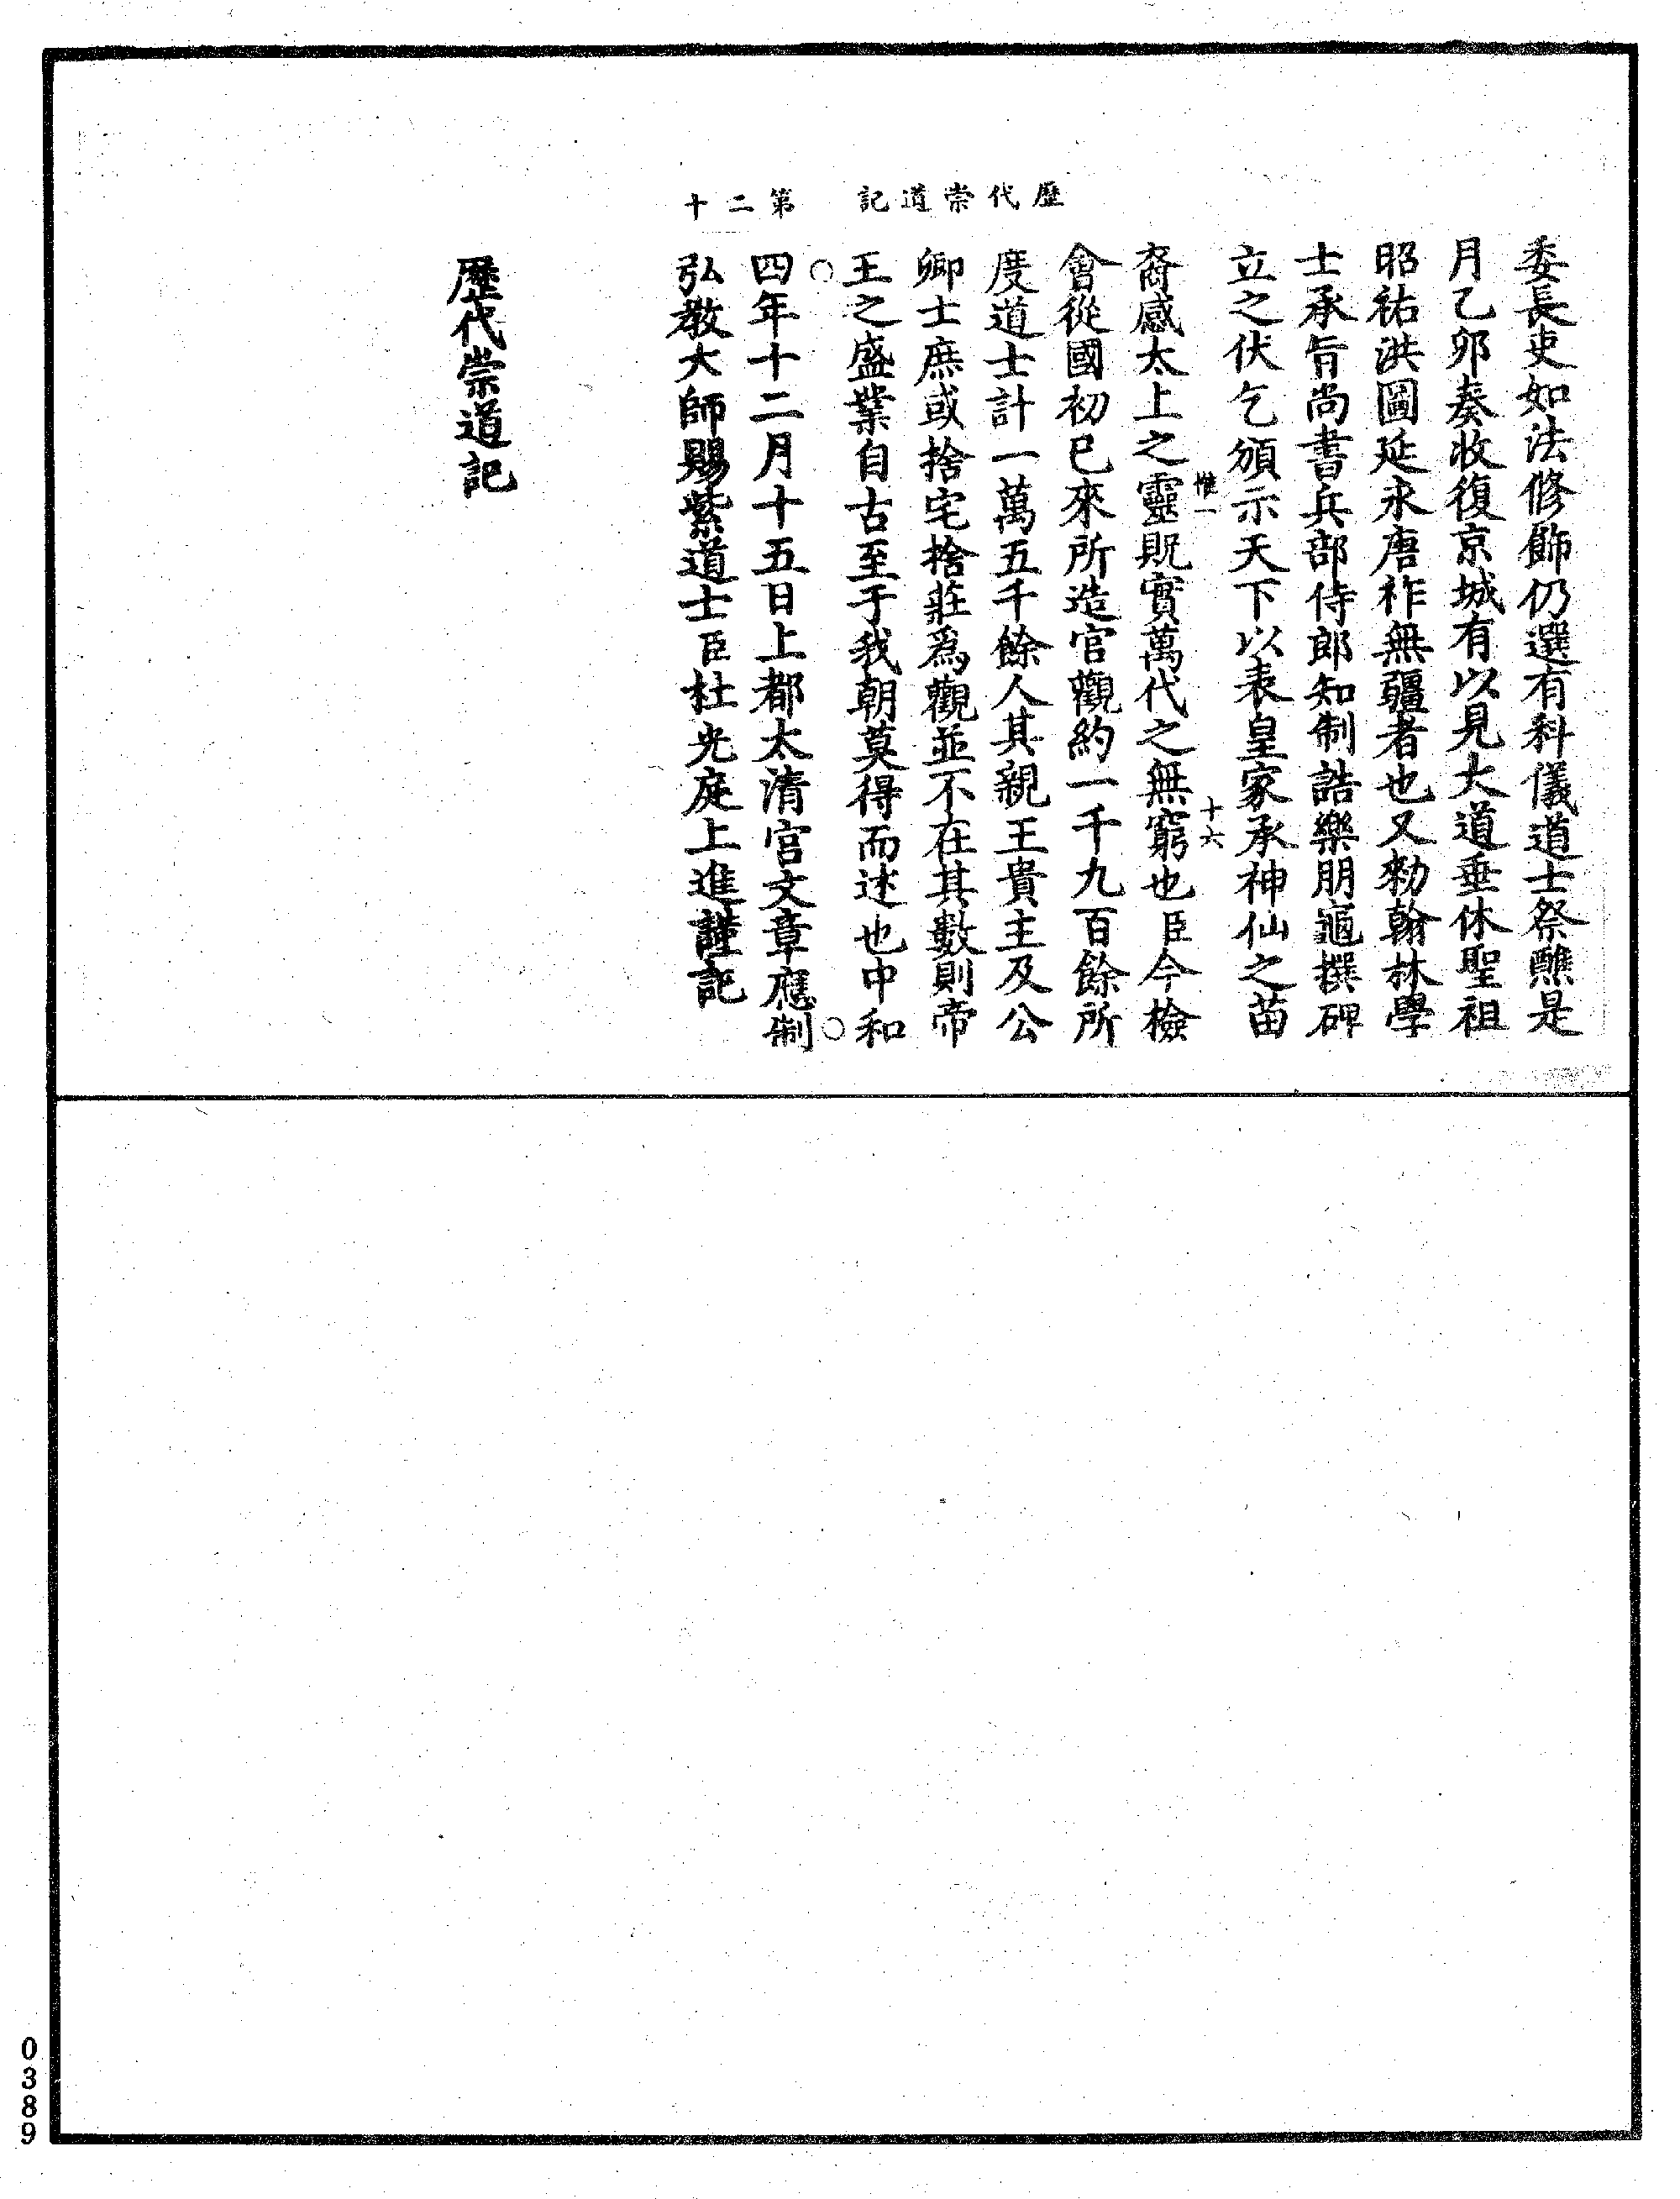 歷代崇道記　第二十
委長吏如法修飾仍選有科儀道士祭醮是
月乙卯奏收復京城有以見大道垂休聖祖
昭祐洪圖延永唐祚無疆者也又勑翰林學
士承旨尚書兵部侍郎知制誥樂朋龜撰碑
立之伏乞頒示天下以表皇家承神仙之苗
惟一　十六
裔感太上之靈貺實萬代之無窮也臣今檢
會從國初已來所造宫觀約一千九百餘所
度道士計一萬五千餘人其親王貴主及公
卿士庶或捨宅捨莊爲觀並不在其數則帝
王之盛業自古至于我朝莫得而述也中和
四年十二月十五日上都太清宫文章應制
弘教大師賜紫道士臣杜光庭上進謹記
歷代崇道記
0389